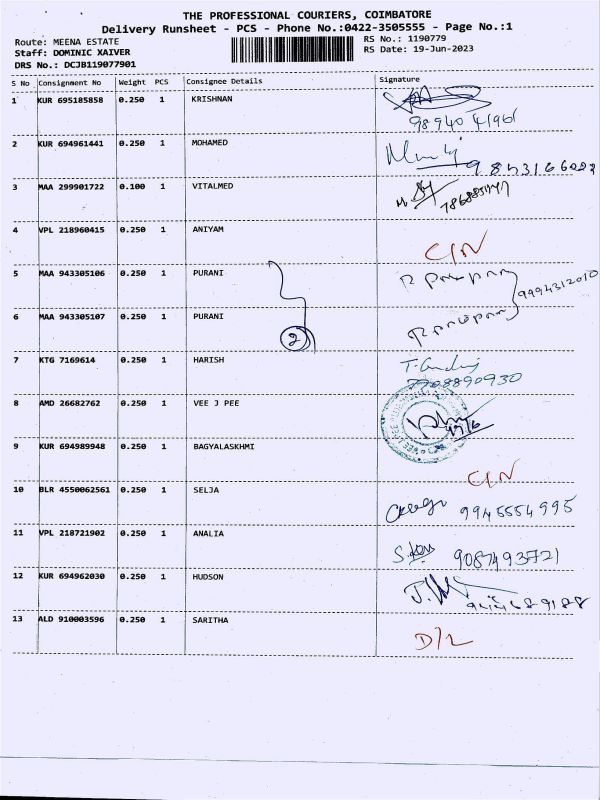 THE PROFESSIONAL COURIERS, COIMBATORE
Delivery Runsheet - PCS - Phone No.:0422-3505555 - Page No.:1
Route: MEENA ESTATE
RS No.: 1190779
Staff: DOMINIC XAIVER
RS Date: 19-Jun-2023
DRS No.: DCJB119077901
S No Consignment No Weight PCS Consignee Details Signature
1 KUR 695185858 0.250 1 KRISHNAN
2 KUR 694961441 0.250 1 MOHAMED
3 MAA 299901722 0.100 1 VITALMED
4 VPL 218960415 0.250 1 ANIYAM C/N
5 MAA 943305106 0.250 1 PURANI
9994312010
6 MAA 943305107 0.250 1 PURANI
2
7 KTG 7169614 0.250 1 HARISH
7708890930
8 AMD 26682762 0.250 1 VEE J PEE
9 KUR 694989948 0.250 1 BAGYALASKHMI C/N
10 BLR 4550062561 0.250 1 SELJA 9945554995
11 VPL 218721902 0.250 1 ANALIA 9087493721
12 KUR 694962030 0.250 1 HUDSON
13 ALD 910003596 0.250 1 SARITHA D/L